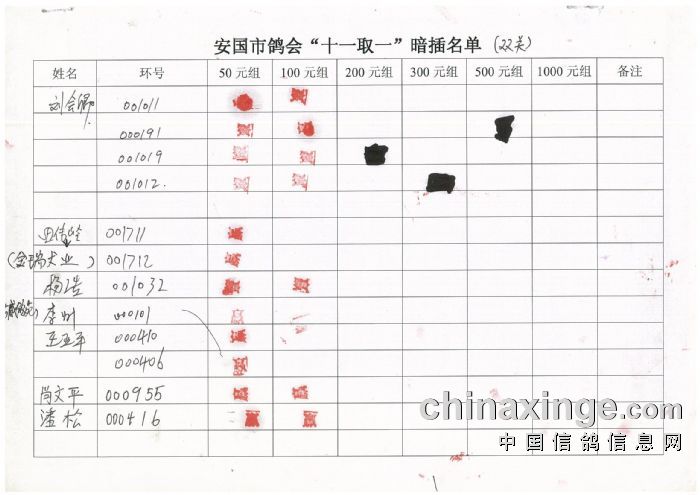 安国市鸽会“十一取一”暗插名单（双关）
姓名 环号 50元组 100元组 200元组 300元组 500元组 1000元组 备注
001011
000191
001019
001012.
001711
001712
杨浩 001032
李 000101
王亚平 000410
000406
尚文平 000955
潘松 000416
chinaxinge.com
中国信鸽信息网